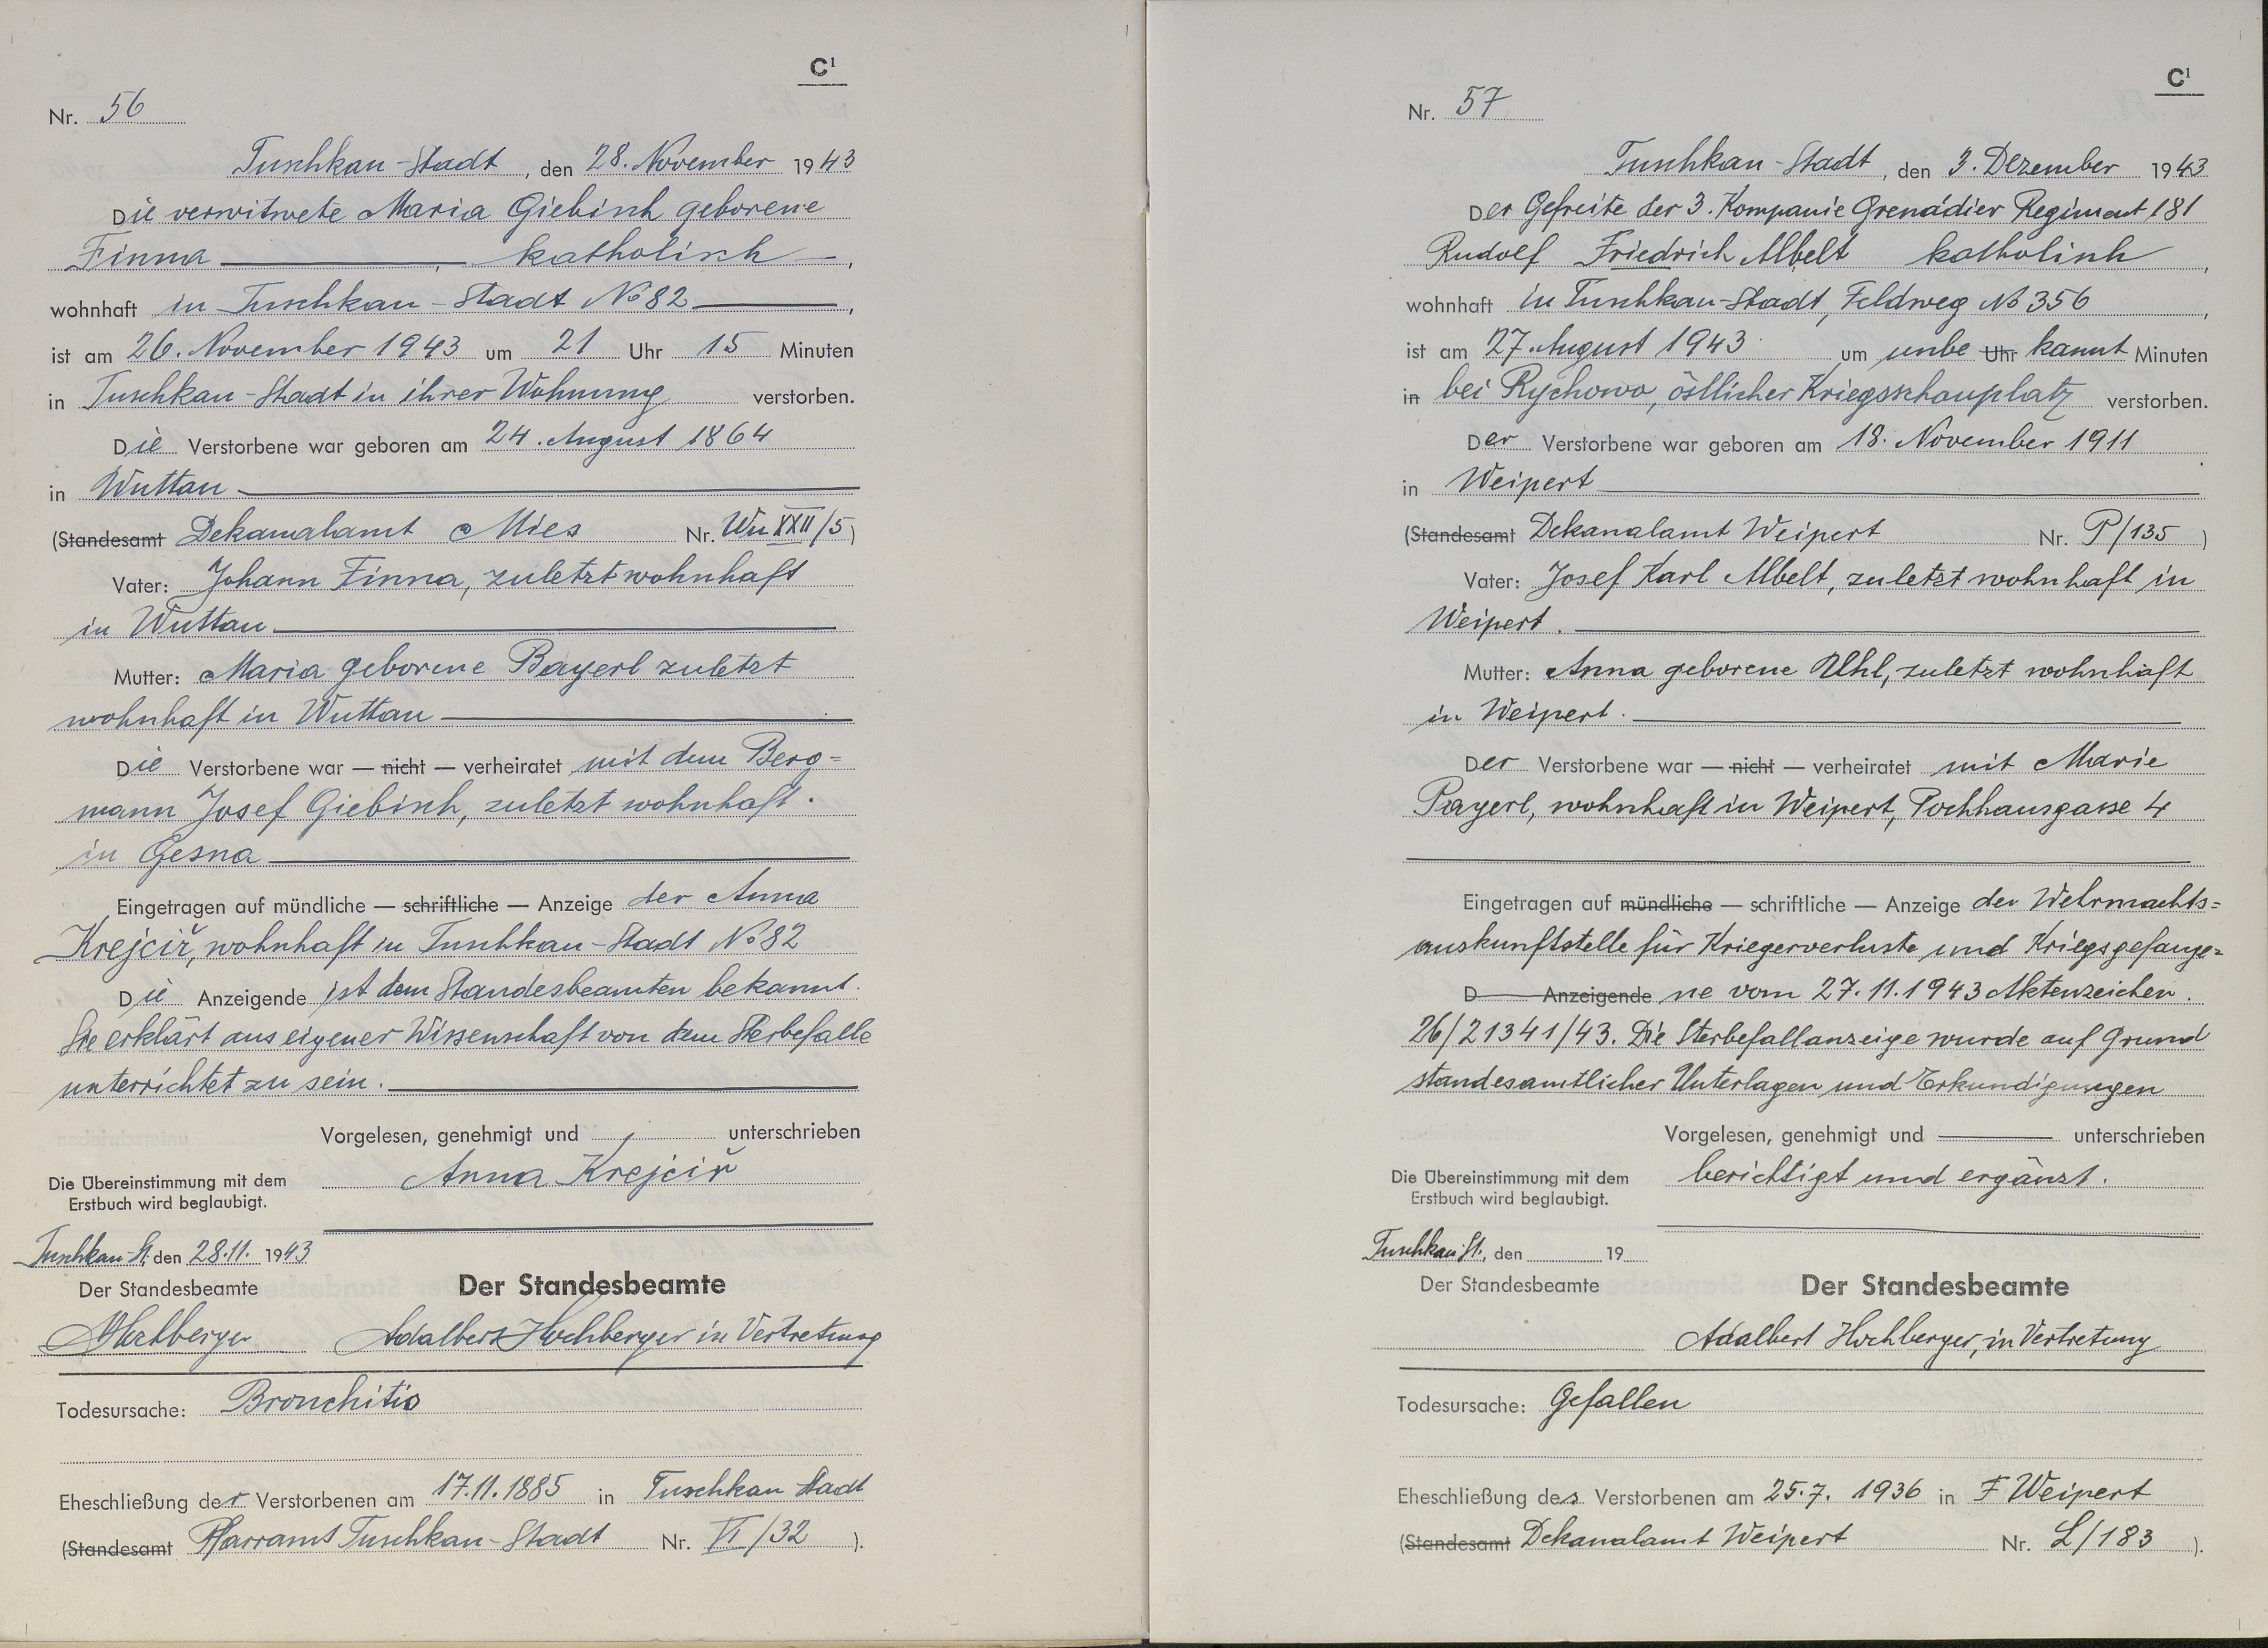 C¹
Nr. 56
Tuschkau-Stadt, den 28. November 1943
Die verwitwete Maria Giebisch geborene
Finna, katholisch,
wohnhaft in Tuschkau-Stadt No 82,
ist am 26. November 1943 um 21 Uhr 15 Minuten
in Tuschkau-Stadt in ihrer Wohnung verstorben.
Die Verstorbene war geboren am 24. August 1864
in Wuttau
(Standesamt Dekanalamt Mies Nr. Wu XXII/5)
Vater: Johann Finna, zuletzt wohnhaft
in Wuttau
Mutter: Maria geborene Bayerl zuletzt
wohnhaft in Wuttau
Die Verstorbene war — nicht — verheiratet mit dem Berg=
mann Josef Giebisch, zuletzt wohnhaft
in Gesna
Eingetragen auf mündliche — schriftliche — Anzeige der Anna
Krejciř, wohnhaft in Tuschkau-Stadt No 82
Die Anzeigende ist dem Standesbeamten bekannt.
Sie erklärt aus eigener Wissenschaft von dem Sterbefalle
unterrichtet zu sein.
Vorgelesen, genehmigt und unterschrieben
Anna Krejciř
Die Übereinstimmung mit dem
Erstbuch wird beglaubigt.
Tuschkau-St., den 28.11. 1943
Der Standesbeamte
AHochberger
Der Standesbeamte
Adalbert Hochberger in Vertretung
Todesursache: Bronchitis
Eheschließung der Verstorbenen am 17.11.1885 in Tuschkau Stadt
(Standesamt Pfarramt Tuschkau-Stadt Nr. VI/32).
C¹
Nr. 57
Tuschkau-Stadt, den 3. Dezember 1943
Der Gefreite der 3. Kompanie Grenadier Regiment 181
Rudolf Friedrich Albelt katholisch,
wohnhaft in Tuschkau-Stadt, Feldweg No 356,
ist am 27. August 1943 um unbe Uhr kannt Minuten
in bei Rychowo, östlicher Kriegsschauplatz verstorben.
Der Verstorbene war geboren am 18. November 1911
in Weipert
(Standesamt Dekanalamt Weipert Nr. P/135)
Vater: Josef Karl Albelt, zuletzt wohnhaft in
Weipert.
Mutter: Anna geborene Uhl, zuletzt wohnhaft
in Weipert.
Der Verstorbene war — nicht — verheiratet mit Marie
Payerl, wohnhaft in Weipert, Pochhausgasse 4
Eingetragen auf mündliche — schriftliche — Anzeige der Wehrmachts=
auskunftstelle für Kriegerverluste und Kriegsgefange=
D Anzeigende ne vom 27.11.1943 Aktenzeichen
26/21341/43. Die Sterbefallanzeige wurde auf Grund
standesamtlicher Unterlagen und Erkundigungen
Vorgelesen, genehmigt und unterschrieben
berichtigt und ergänzt.
Die Übereinstimmung mit dem
Erstbuch wird beglaubigt.
Tuschkau-St., den 19
Der Standesbeamte
Der Standesbeamte
Adalbert Hochberger, in Vertretung
Todesursache: Gefallen
Eheschließung des Verstorbenen am 25.7. 1936 in F Weipert
(Standesamt Dekanalamt Weipert Nr. L/183).